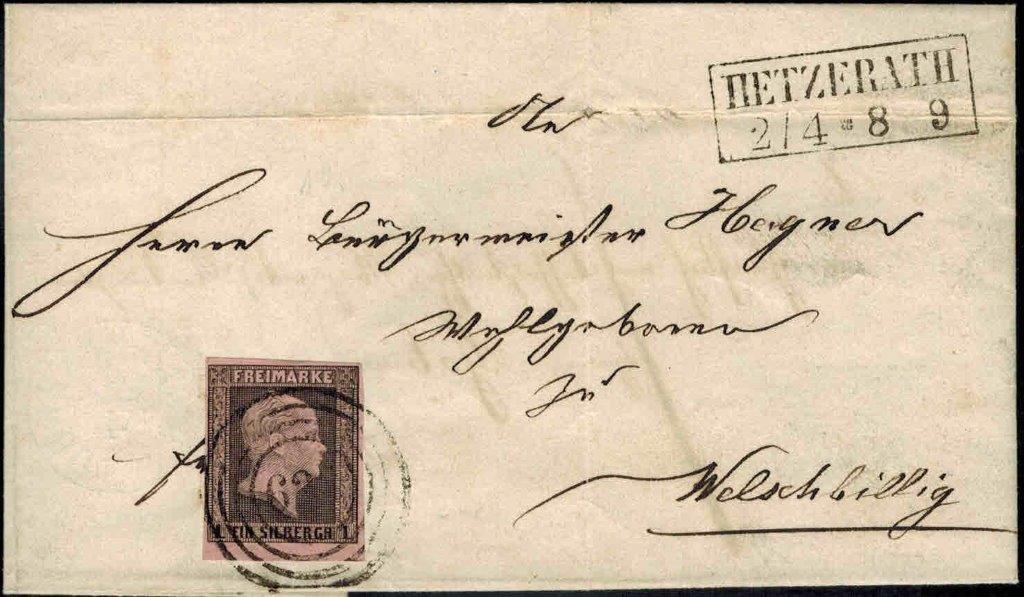 HETZERATH
2/4 * 8 9
An
Herrn Bürgermeister Hagner
Wohlgeboren
zu
Welschbillig
FREIMARKE
1 EIN SILBERGR. 1